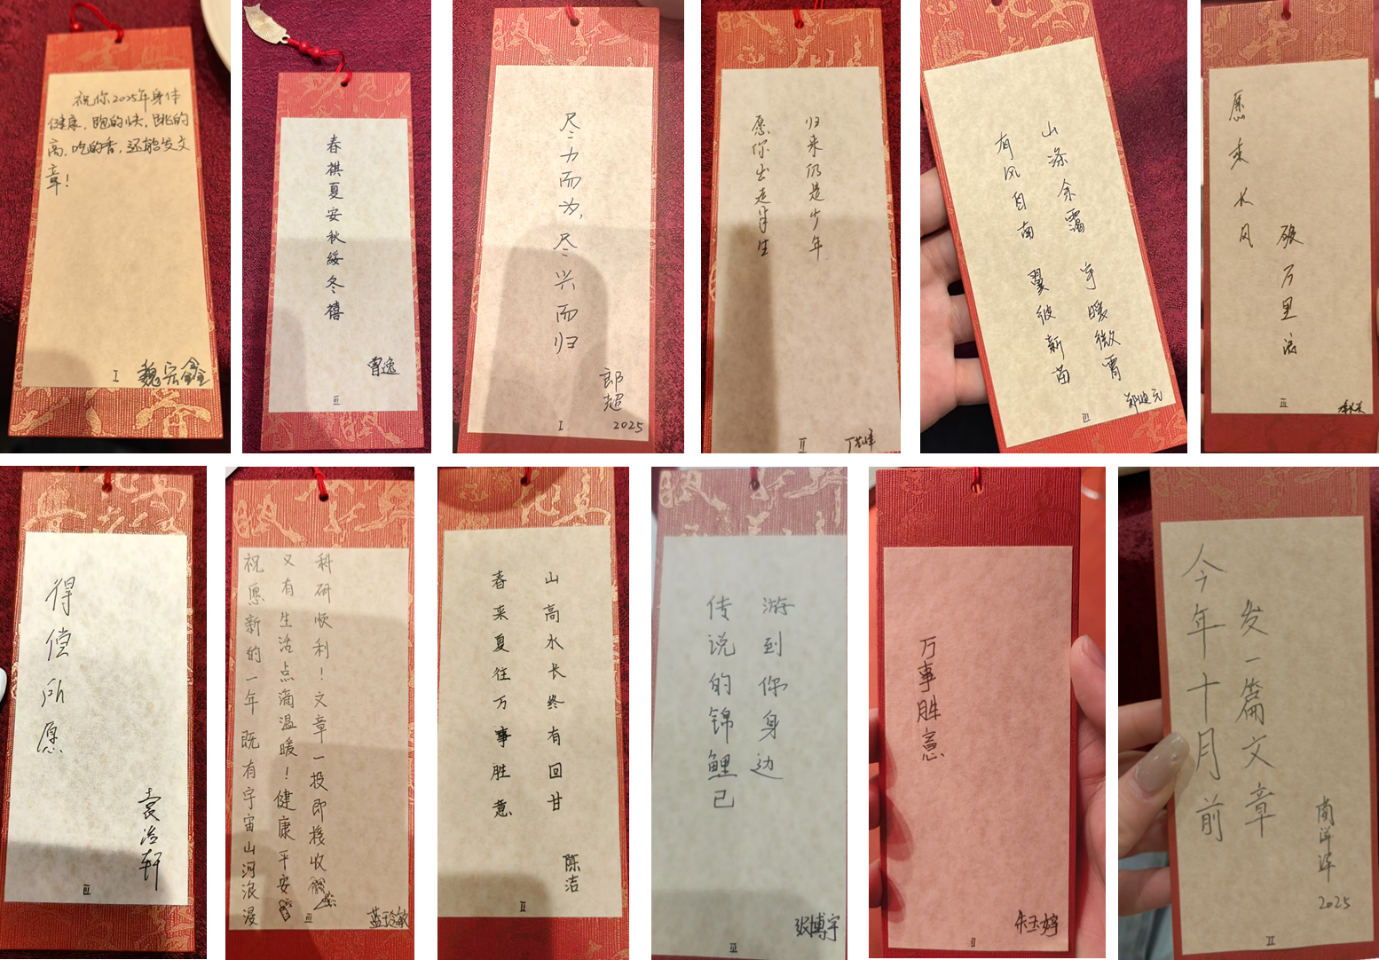 祝你2025年身体
健康，跑的快，跳的
高，吃的香，还能发文
章！
I
魏宗鑫
春祺夏安秋绥冬禧
曹逸
III
尽力而为，尽兴而归
郎超
2025
I
愿你出走半生
归来仍是少年
II
有风自南 翼彼新苗
山涤余霭 宇暖微霄
III
愿乘长风
破万里浪
III
得偿所愿
袁浩轩
III
祝愿新的一年既有宇宙山河浪漫
又有生活点滴温暖！健康平安
科研顺利！文章一投即接收
III
春来夏往万事胜意
山高水长终有回甘
陈洁
II
传说的锦鲤已
游到你身边
张博宇
III
万事胜意
朱玉婷
II
今年十月前
发一篇文章
2025
II